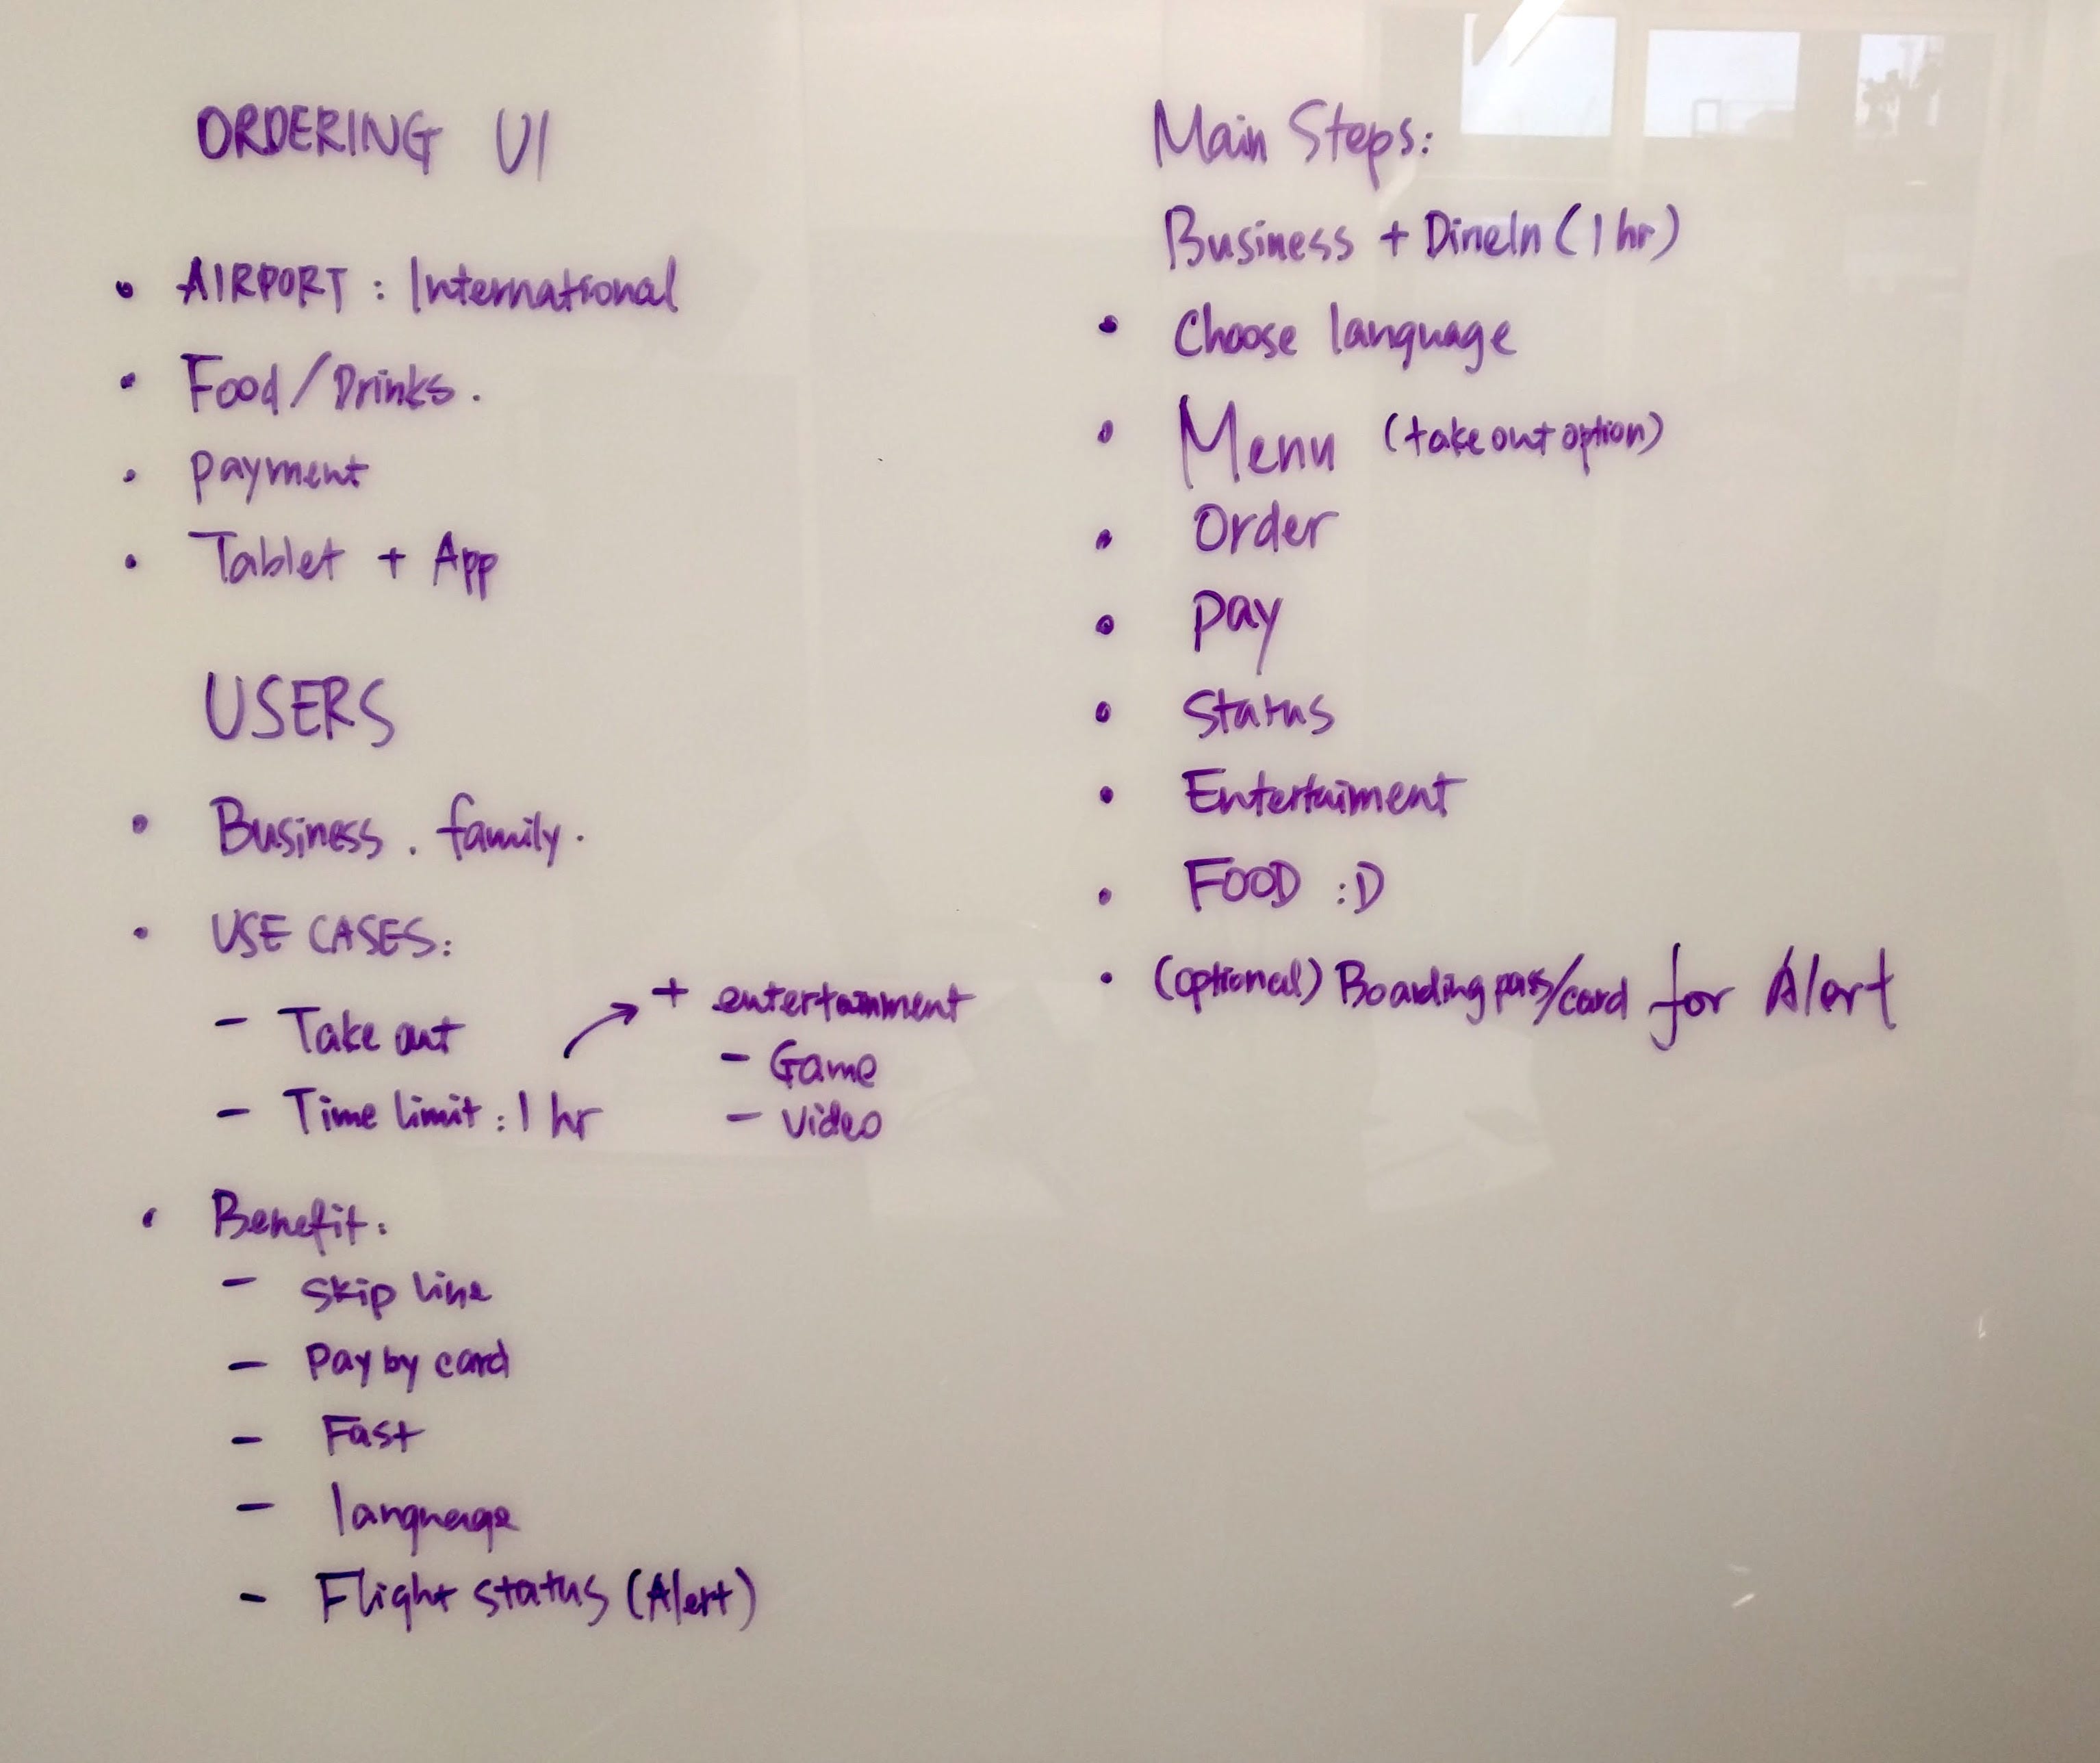 ORDERING UI
• AIRPORT : International
• Food/Drinks.
• Payment
• Tablet + App
USERS
• Business. family.
• USE CASES:
- Take out
- Time limit : 1 hr
+ entertainment
- Game
- Video
• Benefit:
- Skip line
- Pay by card
- Fast
- language
- Flight status (Alert)
Main Steps:
Business + DineIn (1 hr)
• Choose language
• Menu (take out option)
• Order
• Pay
• Status
• Entertaiment
• FOOD :D
• (optional) Boarding pass/card for Alert